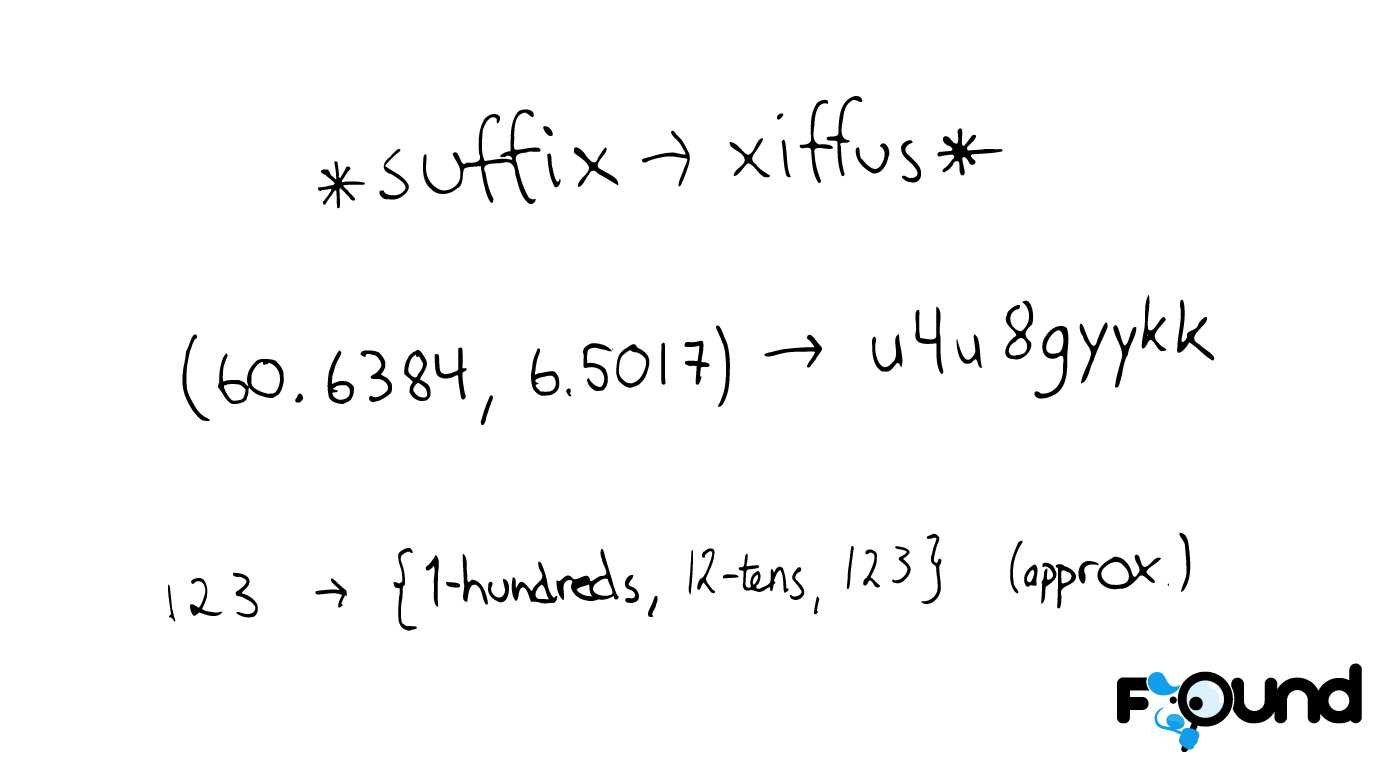 *suffix → xiffus*
(60.6384, 6.5017) → u4u8gyykk
123 → {1-hundreds, 12-tens, 123} (approx.)
Found